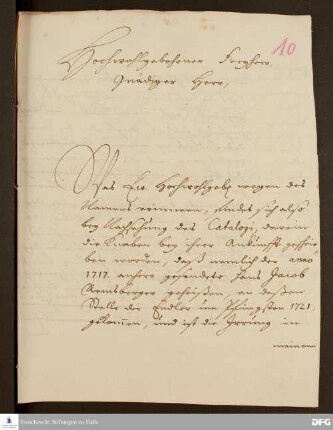 10
Hochwohlgebohrner Freyherr,
Gnädiger Herr,
Was Ew. Hochwohlgeb. wegen des
Namens erinnern, findet sich also
bey Nachsehung des Catalogi, darein
die Knaben bey ihrer Ankunft geschrie
ben worden, daß nemlich der anno
1717. anhero gesendete Hans Jacob
geheißen, an deßen
Stelle der Endler um Pfingsten 1721.
gekommen, und ist die Irrung in
meinem
Franckesche Stiftungen zu Halle
DFG